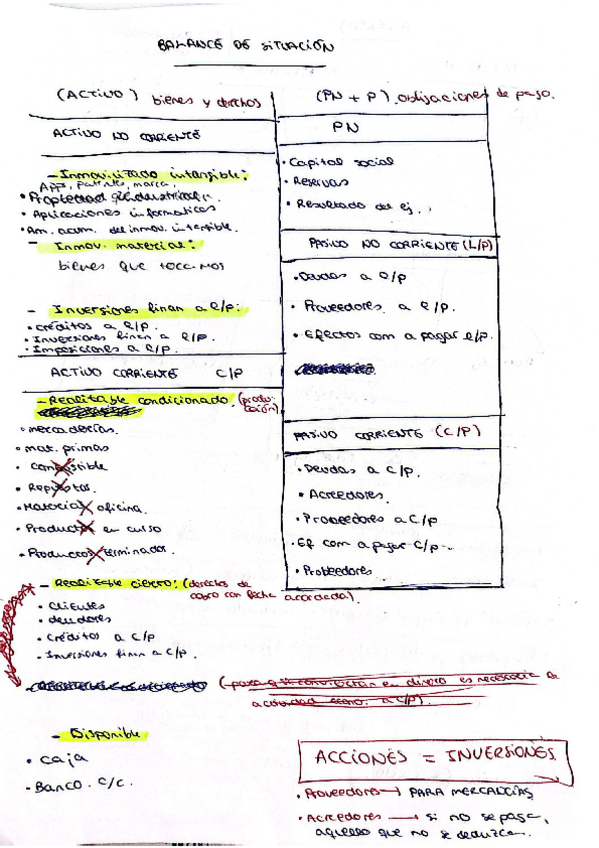 BALANCE DE SITUACIÓN
(ACTIVO) bienes y derechos
ACTIVO NO CORRIENTE
- Inmovilizado intangible:
App, patentes, marca,
• Propiedad industrial
• Aplicaciones informaticas
• Am. acum. del inmov. intangible.
- Inmov. material:
bienes que tocamos
- Inversiones finan a l/p:
• Créditos a l/p.
• Inversiones finan a l/p.
• Imposiciones a l/p.
ACTIVO CORRIENTE C/P
- Realizable condicionado. (producción)
• mercaderías.
• mat. primas
• combustible
• Repuestos.
• Material oficina.
• Productos en curso
• Productos terminados.
- Realizable cierto: (derechos de
cobro con fecha acordada).
• Clientes
• deudores
• Créditos a C/P
• Inversiones finan a C/P.
- Disponible
• Caja
• Banco. C/C.
(PN + P). obligaciones de pago.
PN
• Capital social
• Reservas
• Resultado del ej.
PASIVO NO CORRIENTE (L/P)
• Deudas a l/p
• Proveedores a l/p.
• Efectos com a pagar l/p.
PASIVO CORRIENTE (C/P)
• Deudas a C/p.
• Acreedores.
• Proveedores a C/p
• Ef com a pagar C/p.
• Probeedores
(para q se conviertan en dinero es necesaria la
actividad econo. a C/P).
ACCIONES = INVERSIONES.
• Proveedores → PARA MERCANCÍAS
• Acreedores → si no se paga,
aquello que no se deduzca.